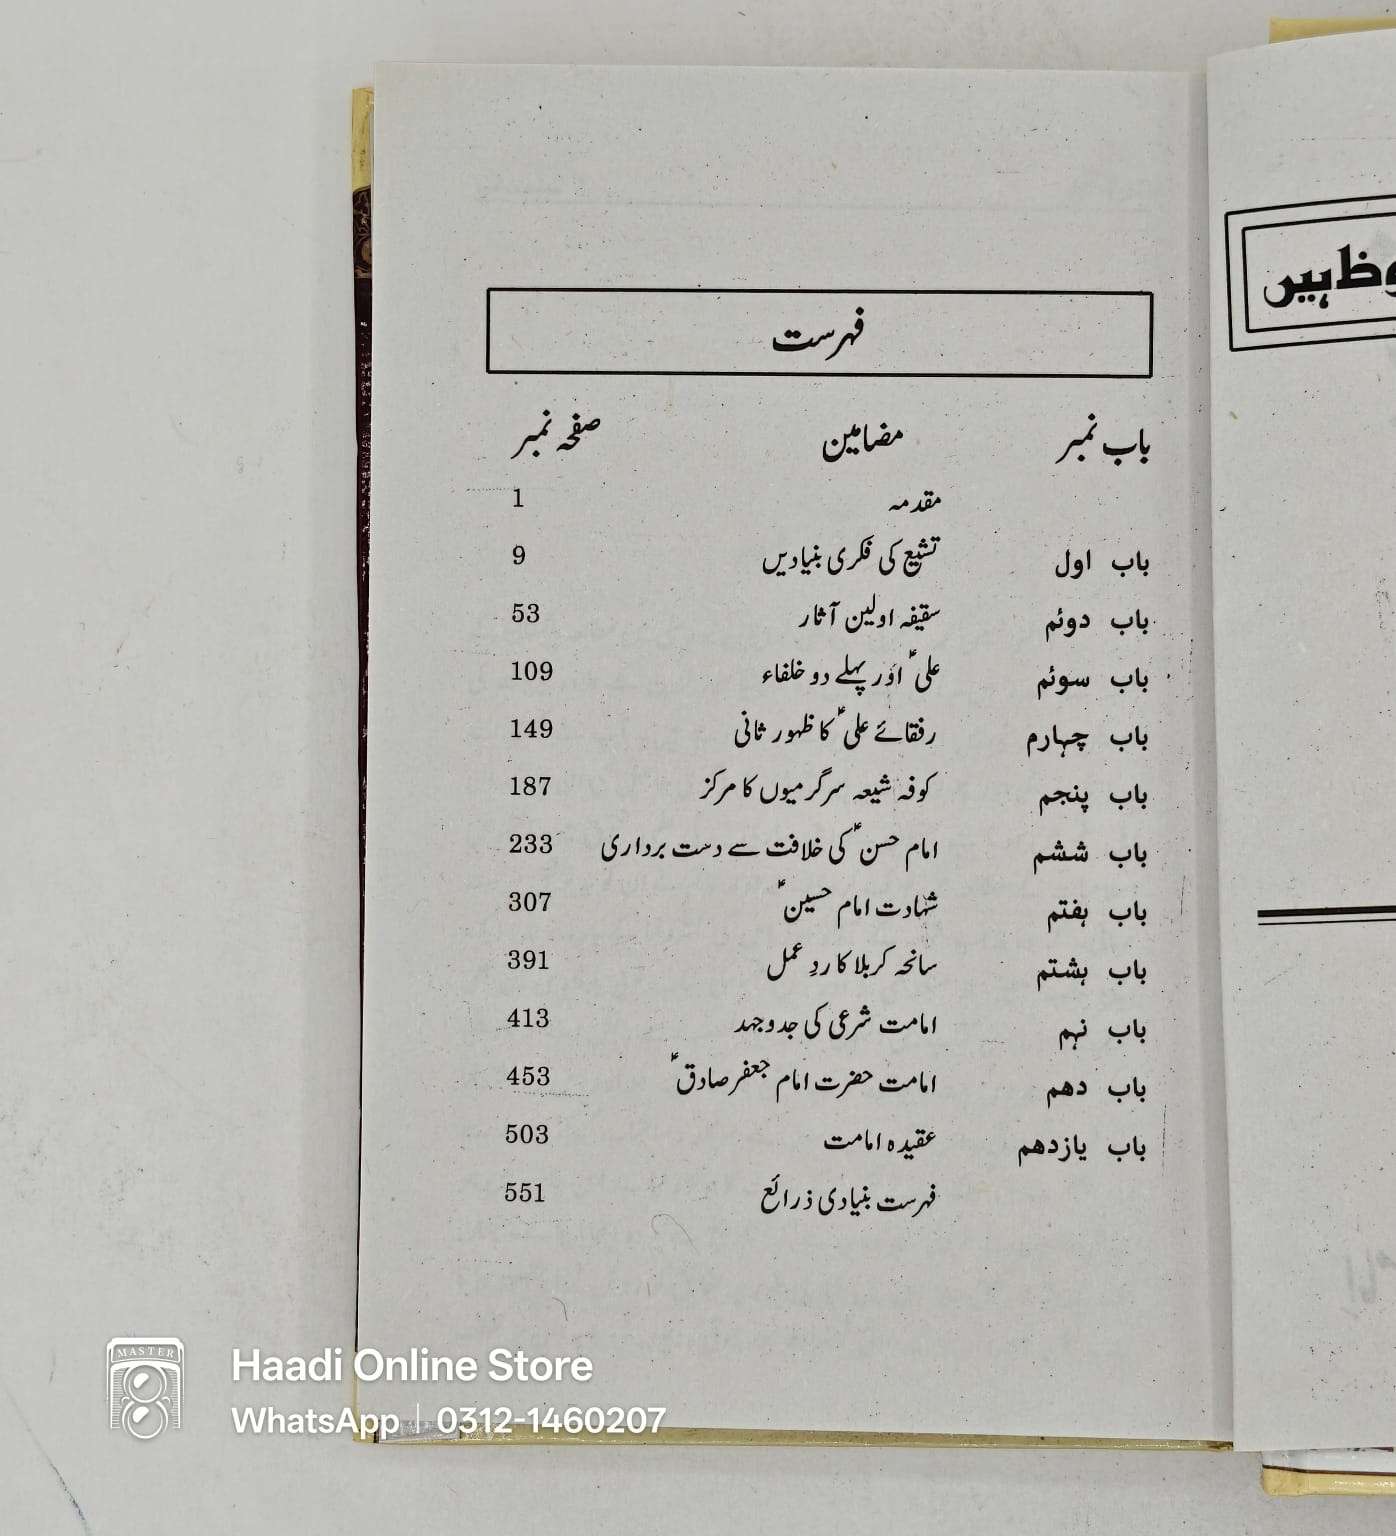 فہرست
باب نمبر مضامین صفحہ نمبر
مقدمہ 1
باب اول تشیع کی فکری بنیادیں 9
باب دوئم سقیفہ اولین آثار 53
باب سوئم علیؑ اور پہلے دو خلفاء 109
باب چہارم رفقائے علیؑ کا ظہور ثانی 149
باب پنجم کوفہ شیعہ سرگرمیوں کا مرکز 187
باب ششم امام حسنؑ کی خلافت سے دست برداری 233
باب ہفتم شہادت امام حسینؑ 307
باب ہشتم سانحہ کربلا کا ردِ عمل 391
باب نہم امامت شرعی کی جدوجہد 413
باب دھم امامت حضرت امام جعفر صادقؑ 453
باب یازدھم عقیدہ امامت 503
فہرست بنیادی ذرائع 551
ہیں
MASTER
Haadi Online Store
WhatsApp | 0312-1460207